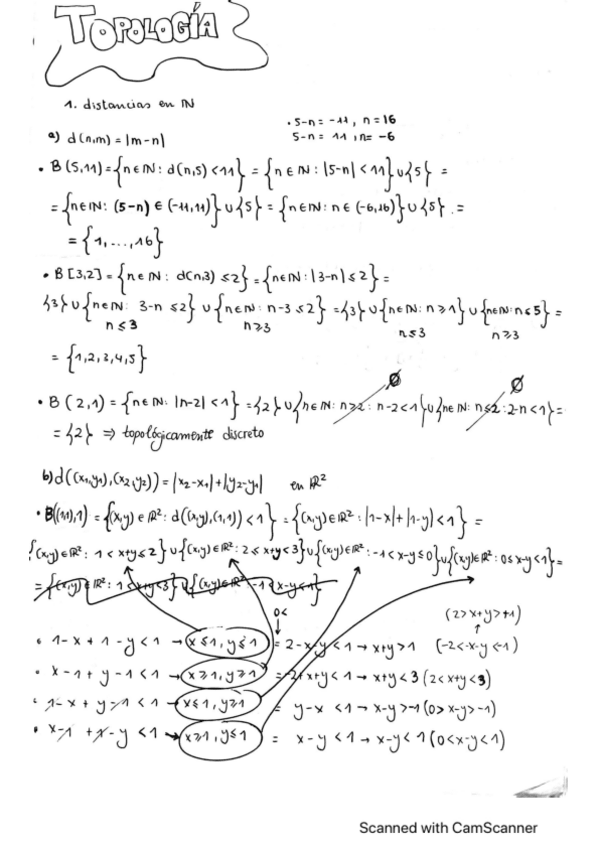 TOPOLOGÍA
1. distancias en ℕ
• 5-n = -11, n=16
a) d(n,m) = |m-n|
5-n = 11, n = -6
• B(5,11) = {n∈ℕ: d(n,5) <11} = {n∈ℕ: |5-n| <11} ∪ {5} =
= {n∈ℕ: (5-n) ∈ (-11,11)} ∪ {5} = {n∈ℕ: n∈(-6,16)} ∪ {5} =
= {1,...,16}
• B[3,2] = {n∈ℕ: d(n,3) ≤2} = {n∈ℕ: |3-n| ≤2} =
{3} ∪ {n∈ℕ: 3-n ≤2} ∪ {n∈ℕ: n-3 ≤2} = {3} ∪ {n∈ℕ: n≥1} ∪ {n∈ℕ: n≤5} =
n≤3 n≥3 n≤3 n≥3
= {1,2,3,4,5}
∅ ∅
• B(2,1) = {n∈ℕ: |n-2| <1} = {2} ∪ {n∈ℕ: n≥2: n-2<1} ∪ {n∈ℕ: n≤2: 2-n<1} =
= {2} ⇒ topológicamente discreto
b) d((x₁,y₁),(x₂,y₂)) = |x₂-x₁|+|y₂-y₁| en ℝ²
• B((1,1),1) = {(x,y)∈ℝ²: d((x,y),(1,1)) <1} = {(x,y)∈ℝ²: |1-x|+|1-y| <1} =
{(x,y)∈ℝ²: 1<x+y≤2} ∪ {(x,y)∈ℝ²: 2≤x+y<3} ∪ {(x,y)∈ℝ²: -1<x-y≤0} ∪ {(x,y)∈ℝ²: 0≤x-y<1} =
= {(x,y)∈ℝ²: 1<x+y<3} ∪ {(x,y)∈ℝ²: -1<x-y<1}
0<
(2>x+y>+1)
• 1-x + 1-y <1 → x≤1, y≤1 = 2-x-y <1 → x+y>1 (-2<-x-y<-1)
• x-1 + y-1 <1 → x≥1, y≥1 = -2+x+y <1 → x+y<3 (2<x+y<3)
• 1-x + y-1 <1 → x≤1, y≥1 = y-x <1 → x-y>-1 (0>x-y>-1)
• x-1 + 1-y <1 → x≥1, y≤1 = x-y <1 → x-y<1 (0<x-y<1)
Scanned with CamScanner